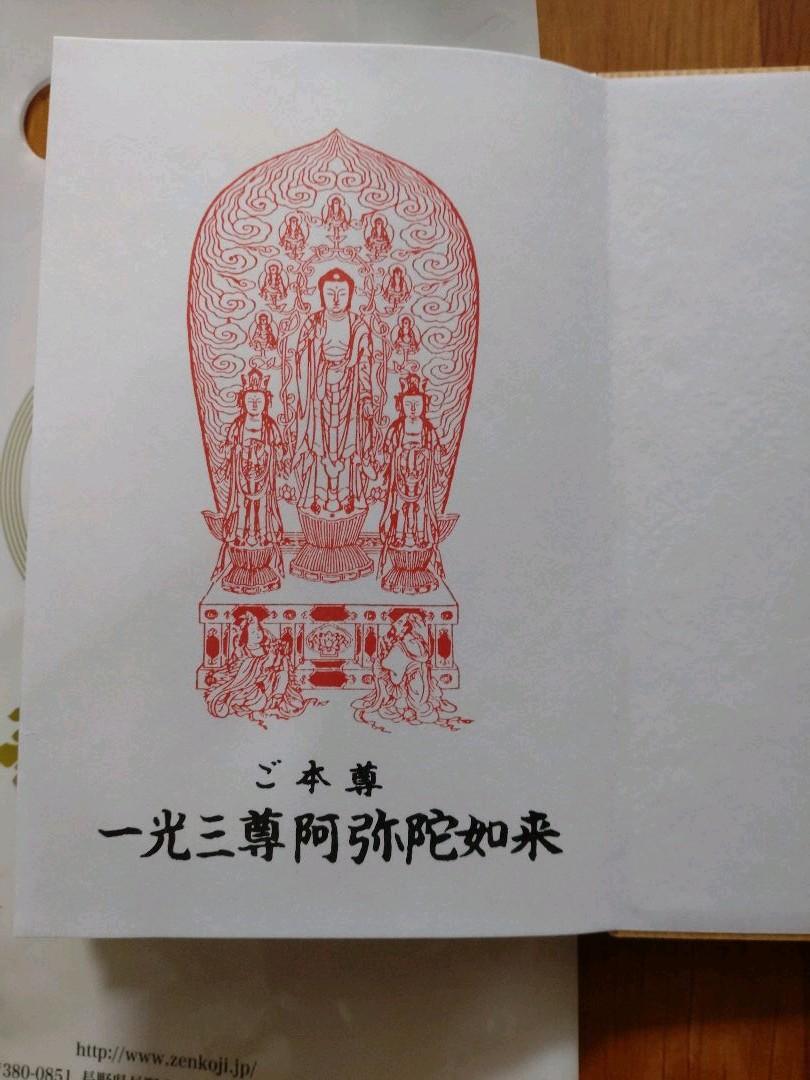 ご本尊
一光三尊阿弥陀如来
http://www.zenkoji.jp/
380-0851 長野県長野